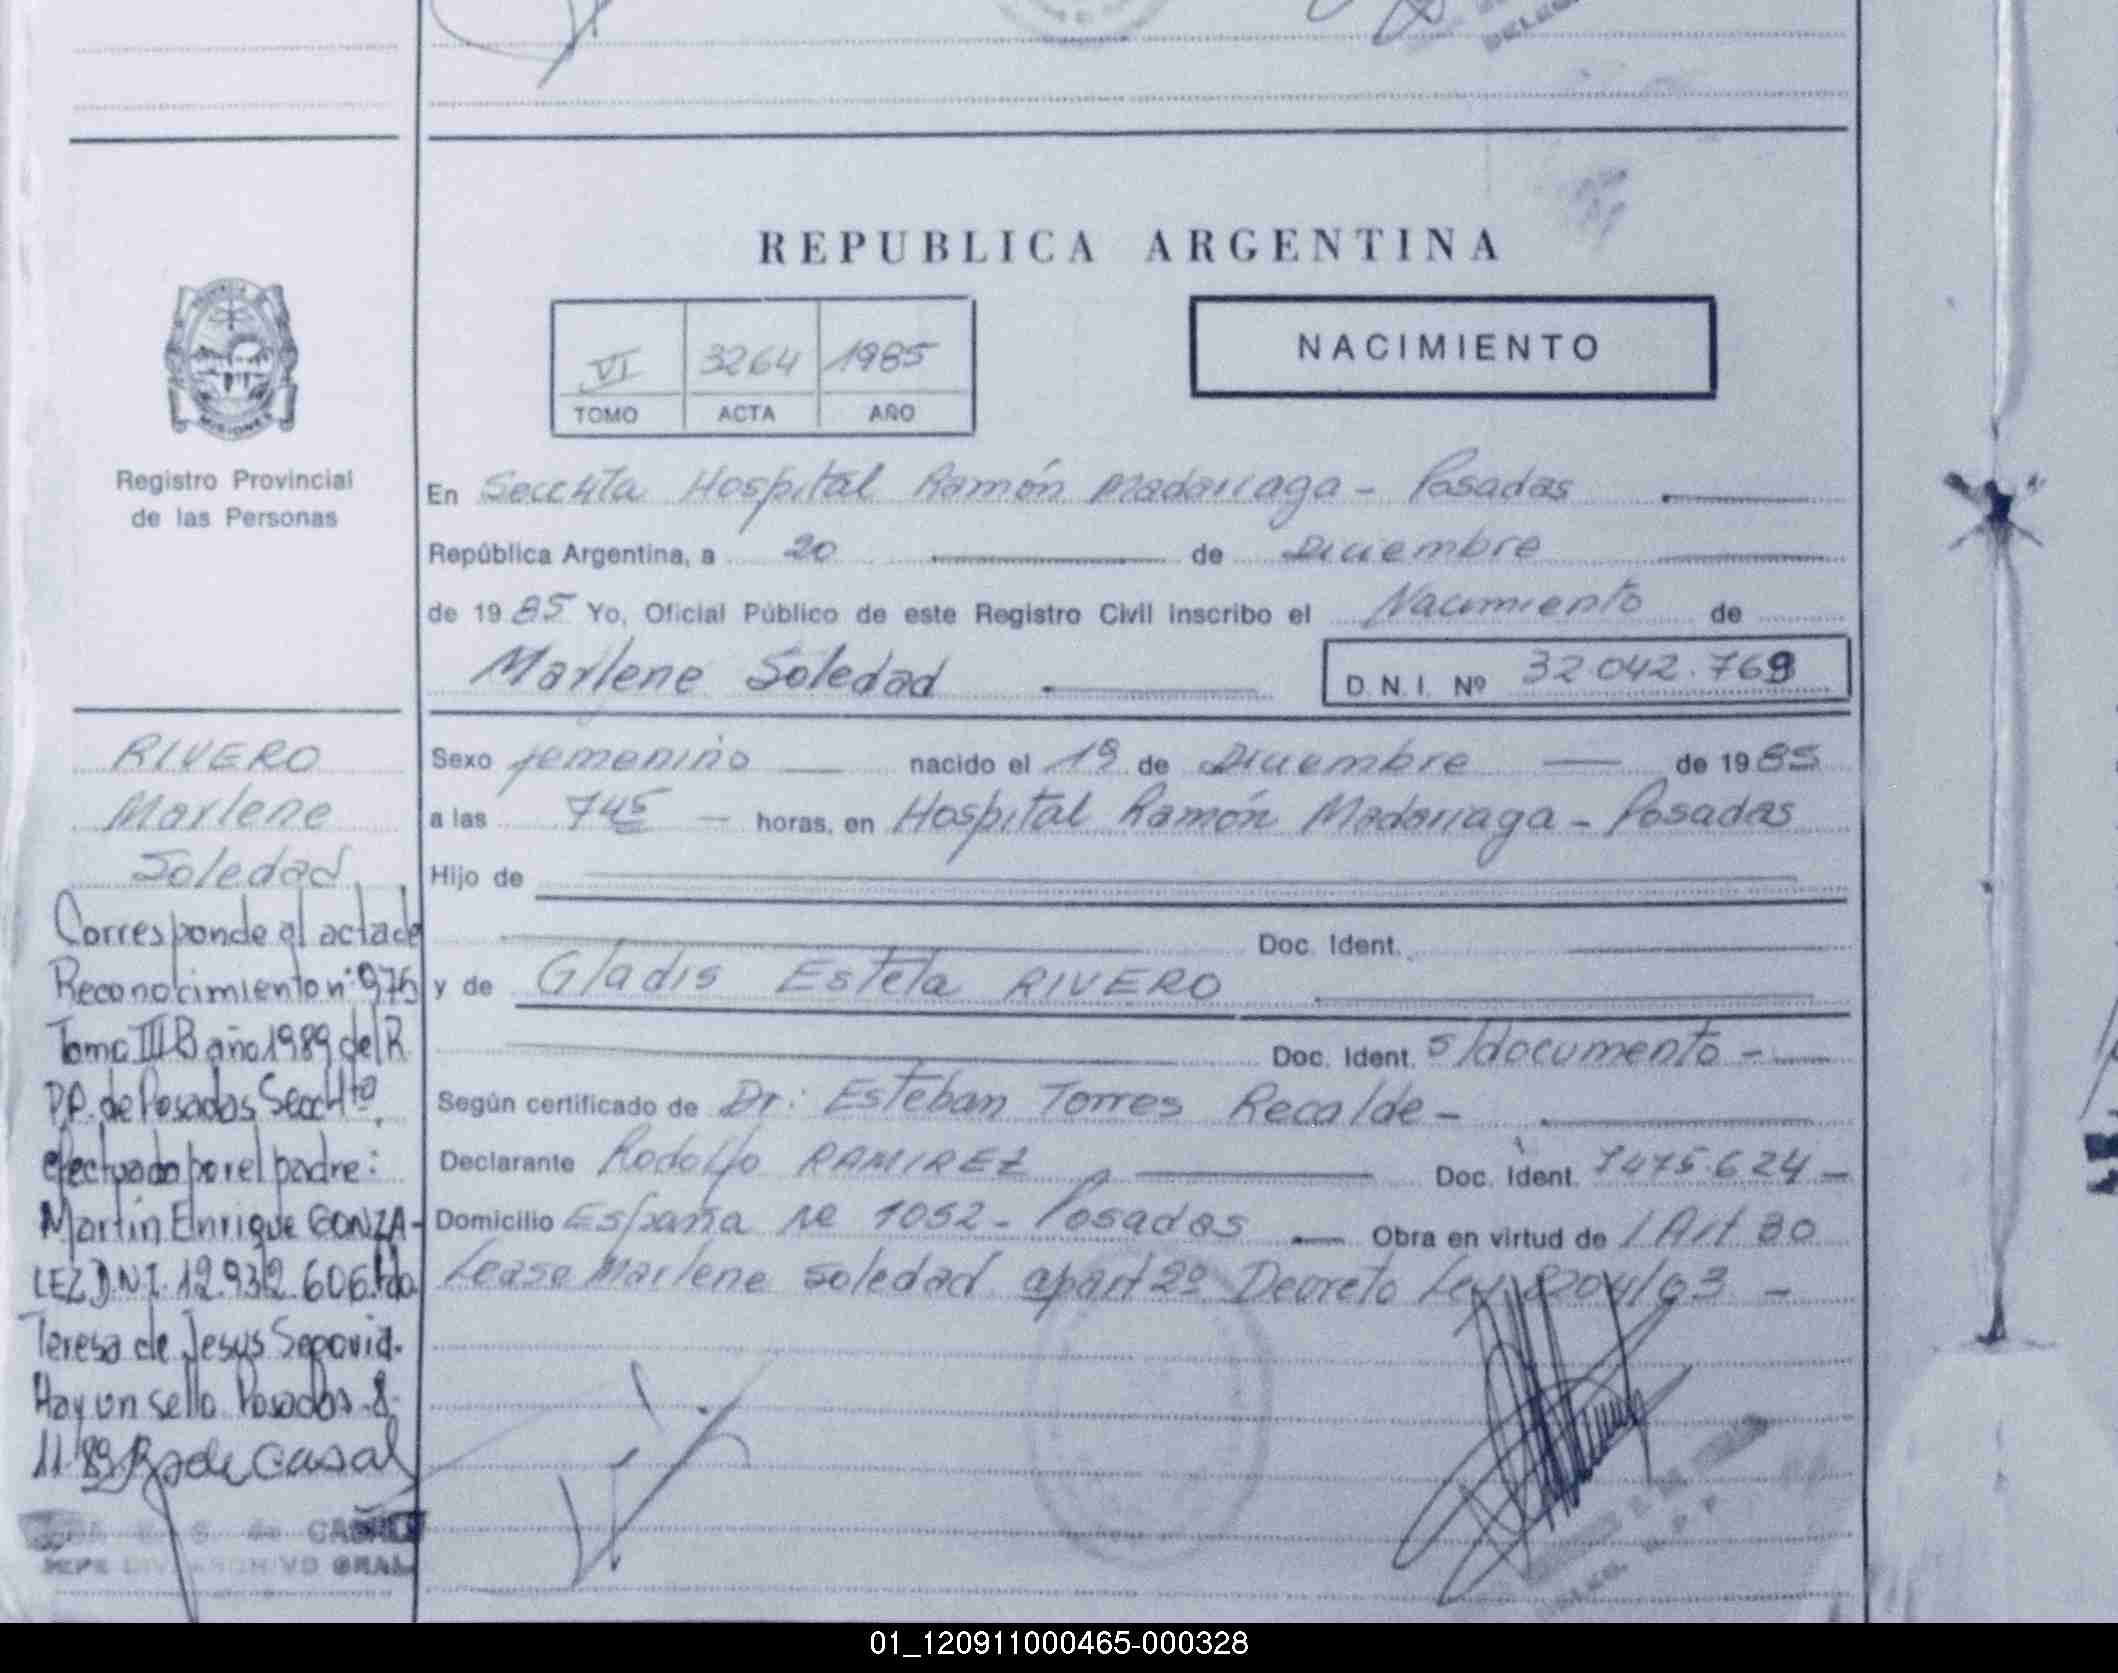 REPUBLICA ARGENTINA
NACIMIENTO
VI 3264 1985
TOMO ACTA AÑO
PROVINCIA DE
MISIONES
Registro Provincial
de las Personas
En Secc 4ta Hospital Ramón Madariaga - Posadas
República Argentina, a 20 de Diciembre
de 1985 Yo, Oficial Público de este Registro Civil inscribo el Nacimiento de
Marlene Soledad D.N.I. Nº 32.042.769
Sexo femenino nacido el 19 de Diciembre de 1985
a las 745 horas, en Hospital Ramón Madariaga - Posadas
Hijo de
Doc. Ident.
y de Gladis Estela RIVERO
Doc. Ident. s/documento -
Según certificado de Dr: Esteban Torres Recalde -
Declarante Rodolfo RAMIREZ Doc. Ident. 7475.624 -
Domicilio España Nº 1052 - Posadas Obra en virtud de / Art 30
Lease Marlene Soledad apart 2º Decreto Ley 8204/63 -
RIVERO
Marlene
Soledad
Corresponde al acta de
Reconocimiento nº 975
Tomo III B año 1989 del R.
P.P. de Posadas Secc 4ta.
efectuado por el padre:
Martín Enrique GONZA-
LEZ D.N.I. 12.932.606. fdo
Teresa de Jesus Segovia.
Hay un sello Posados-8-
11-89 B de Casal
S. de CASAL
JEFE DIV. ARCHIVO GRAL
01_120911000465-000328